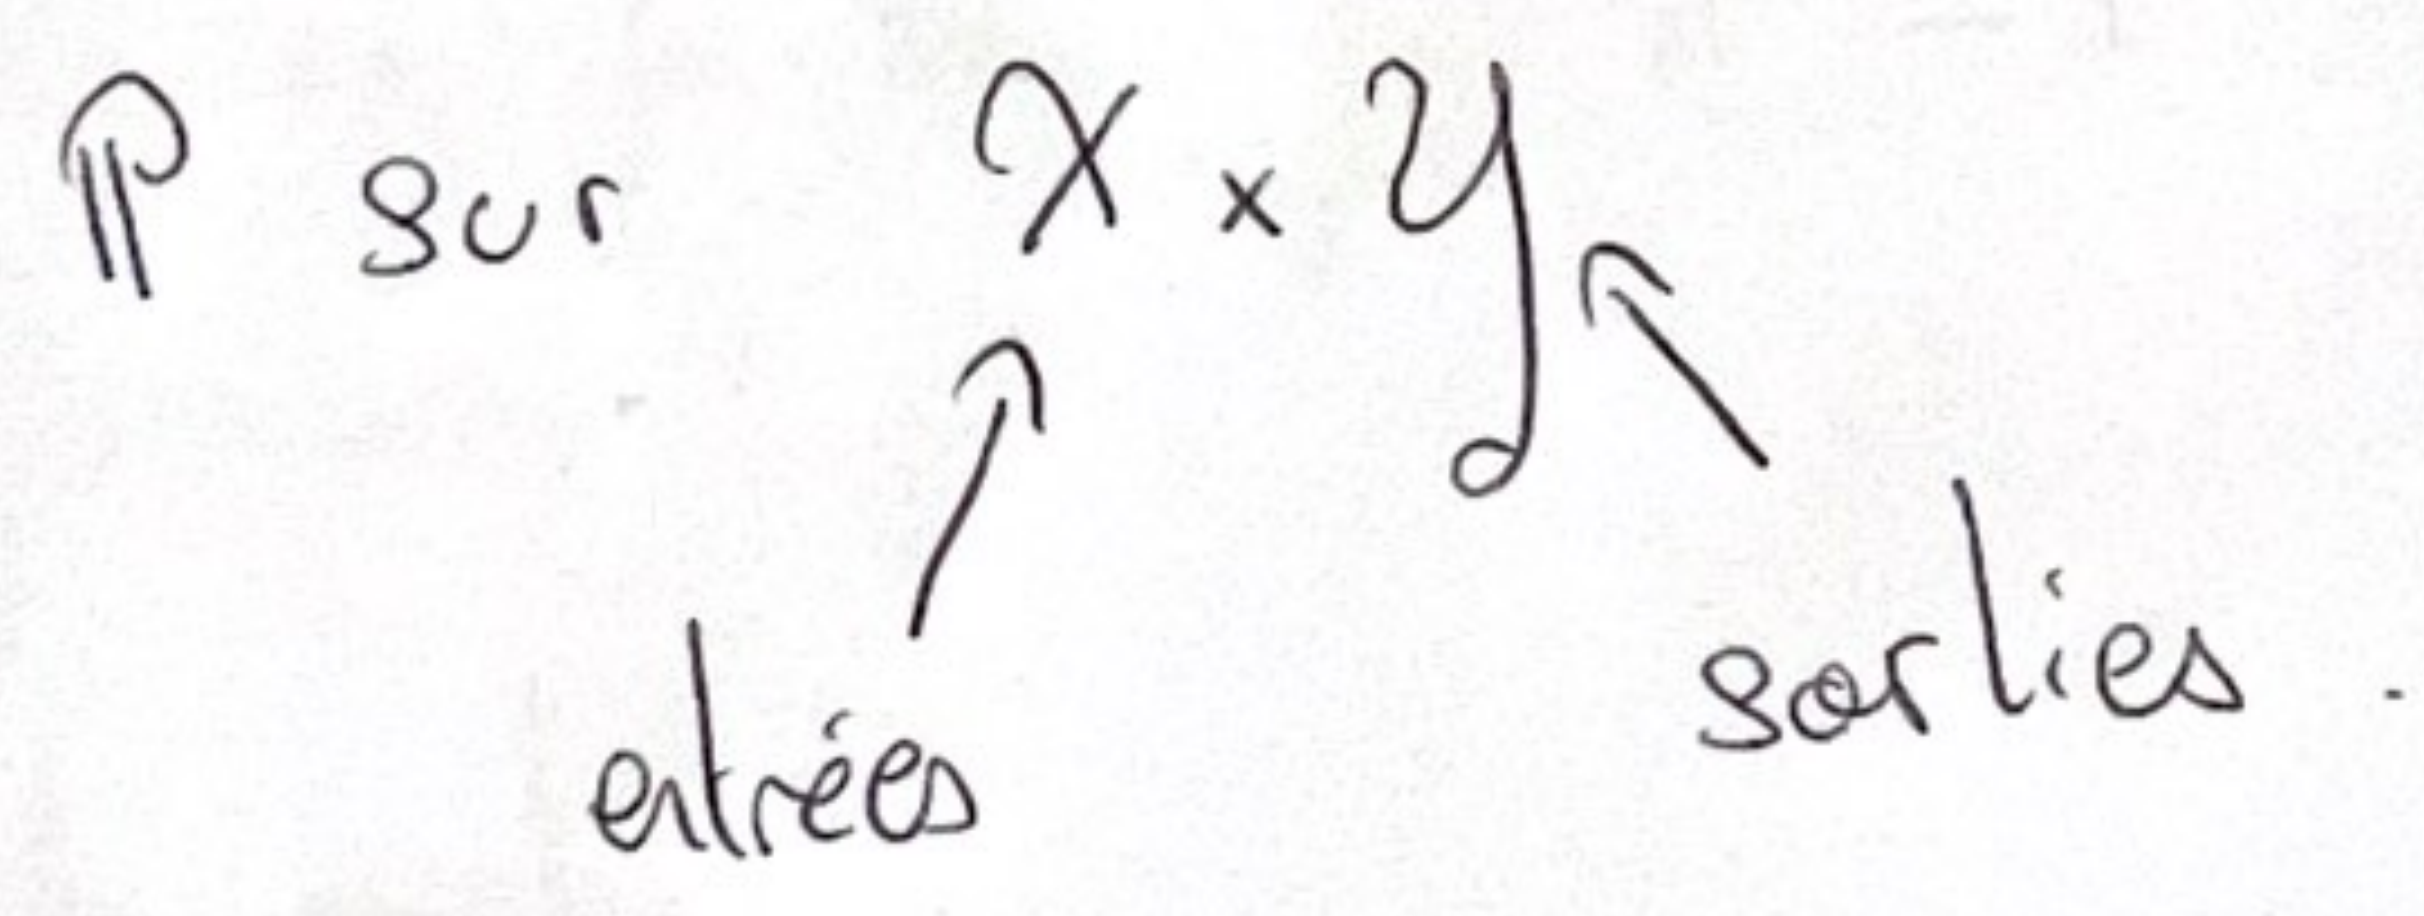 ℙ sur 𝒳 × 𝒴
entrées
sorties.